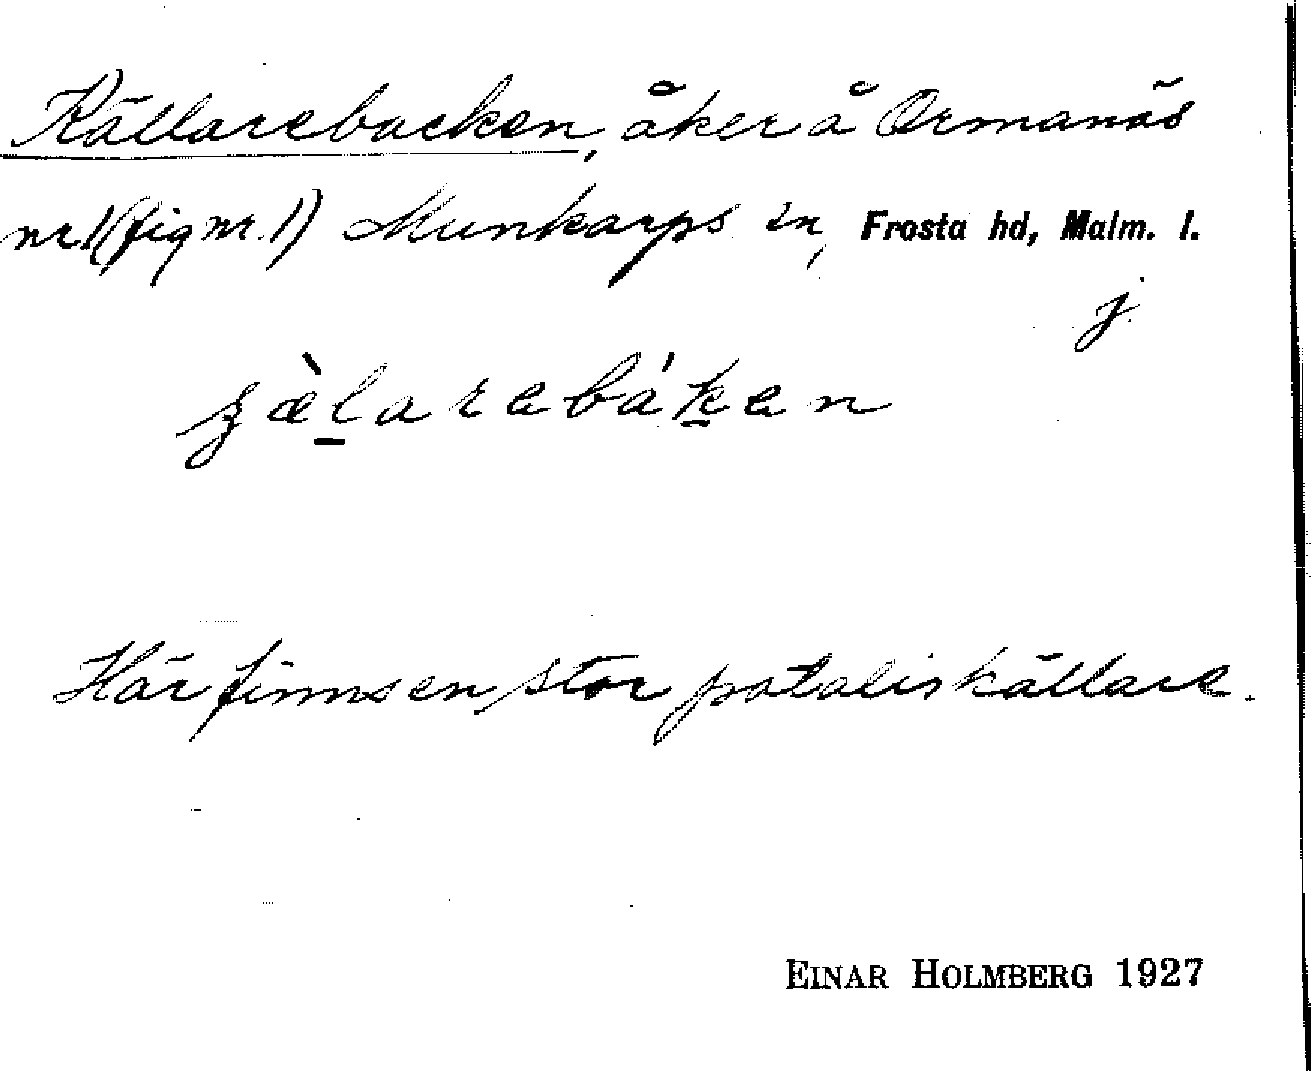 Källarebacken, åker å Ormanäs
nr 1 (fig nr. 1) Munkarps sn, Frosta hd, Malm. l.
j.
Här finns en stor potatiskällare.
EINAR HOLMBERG 1927